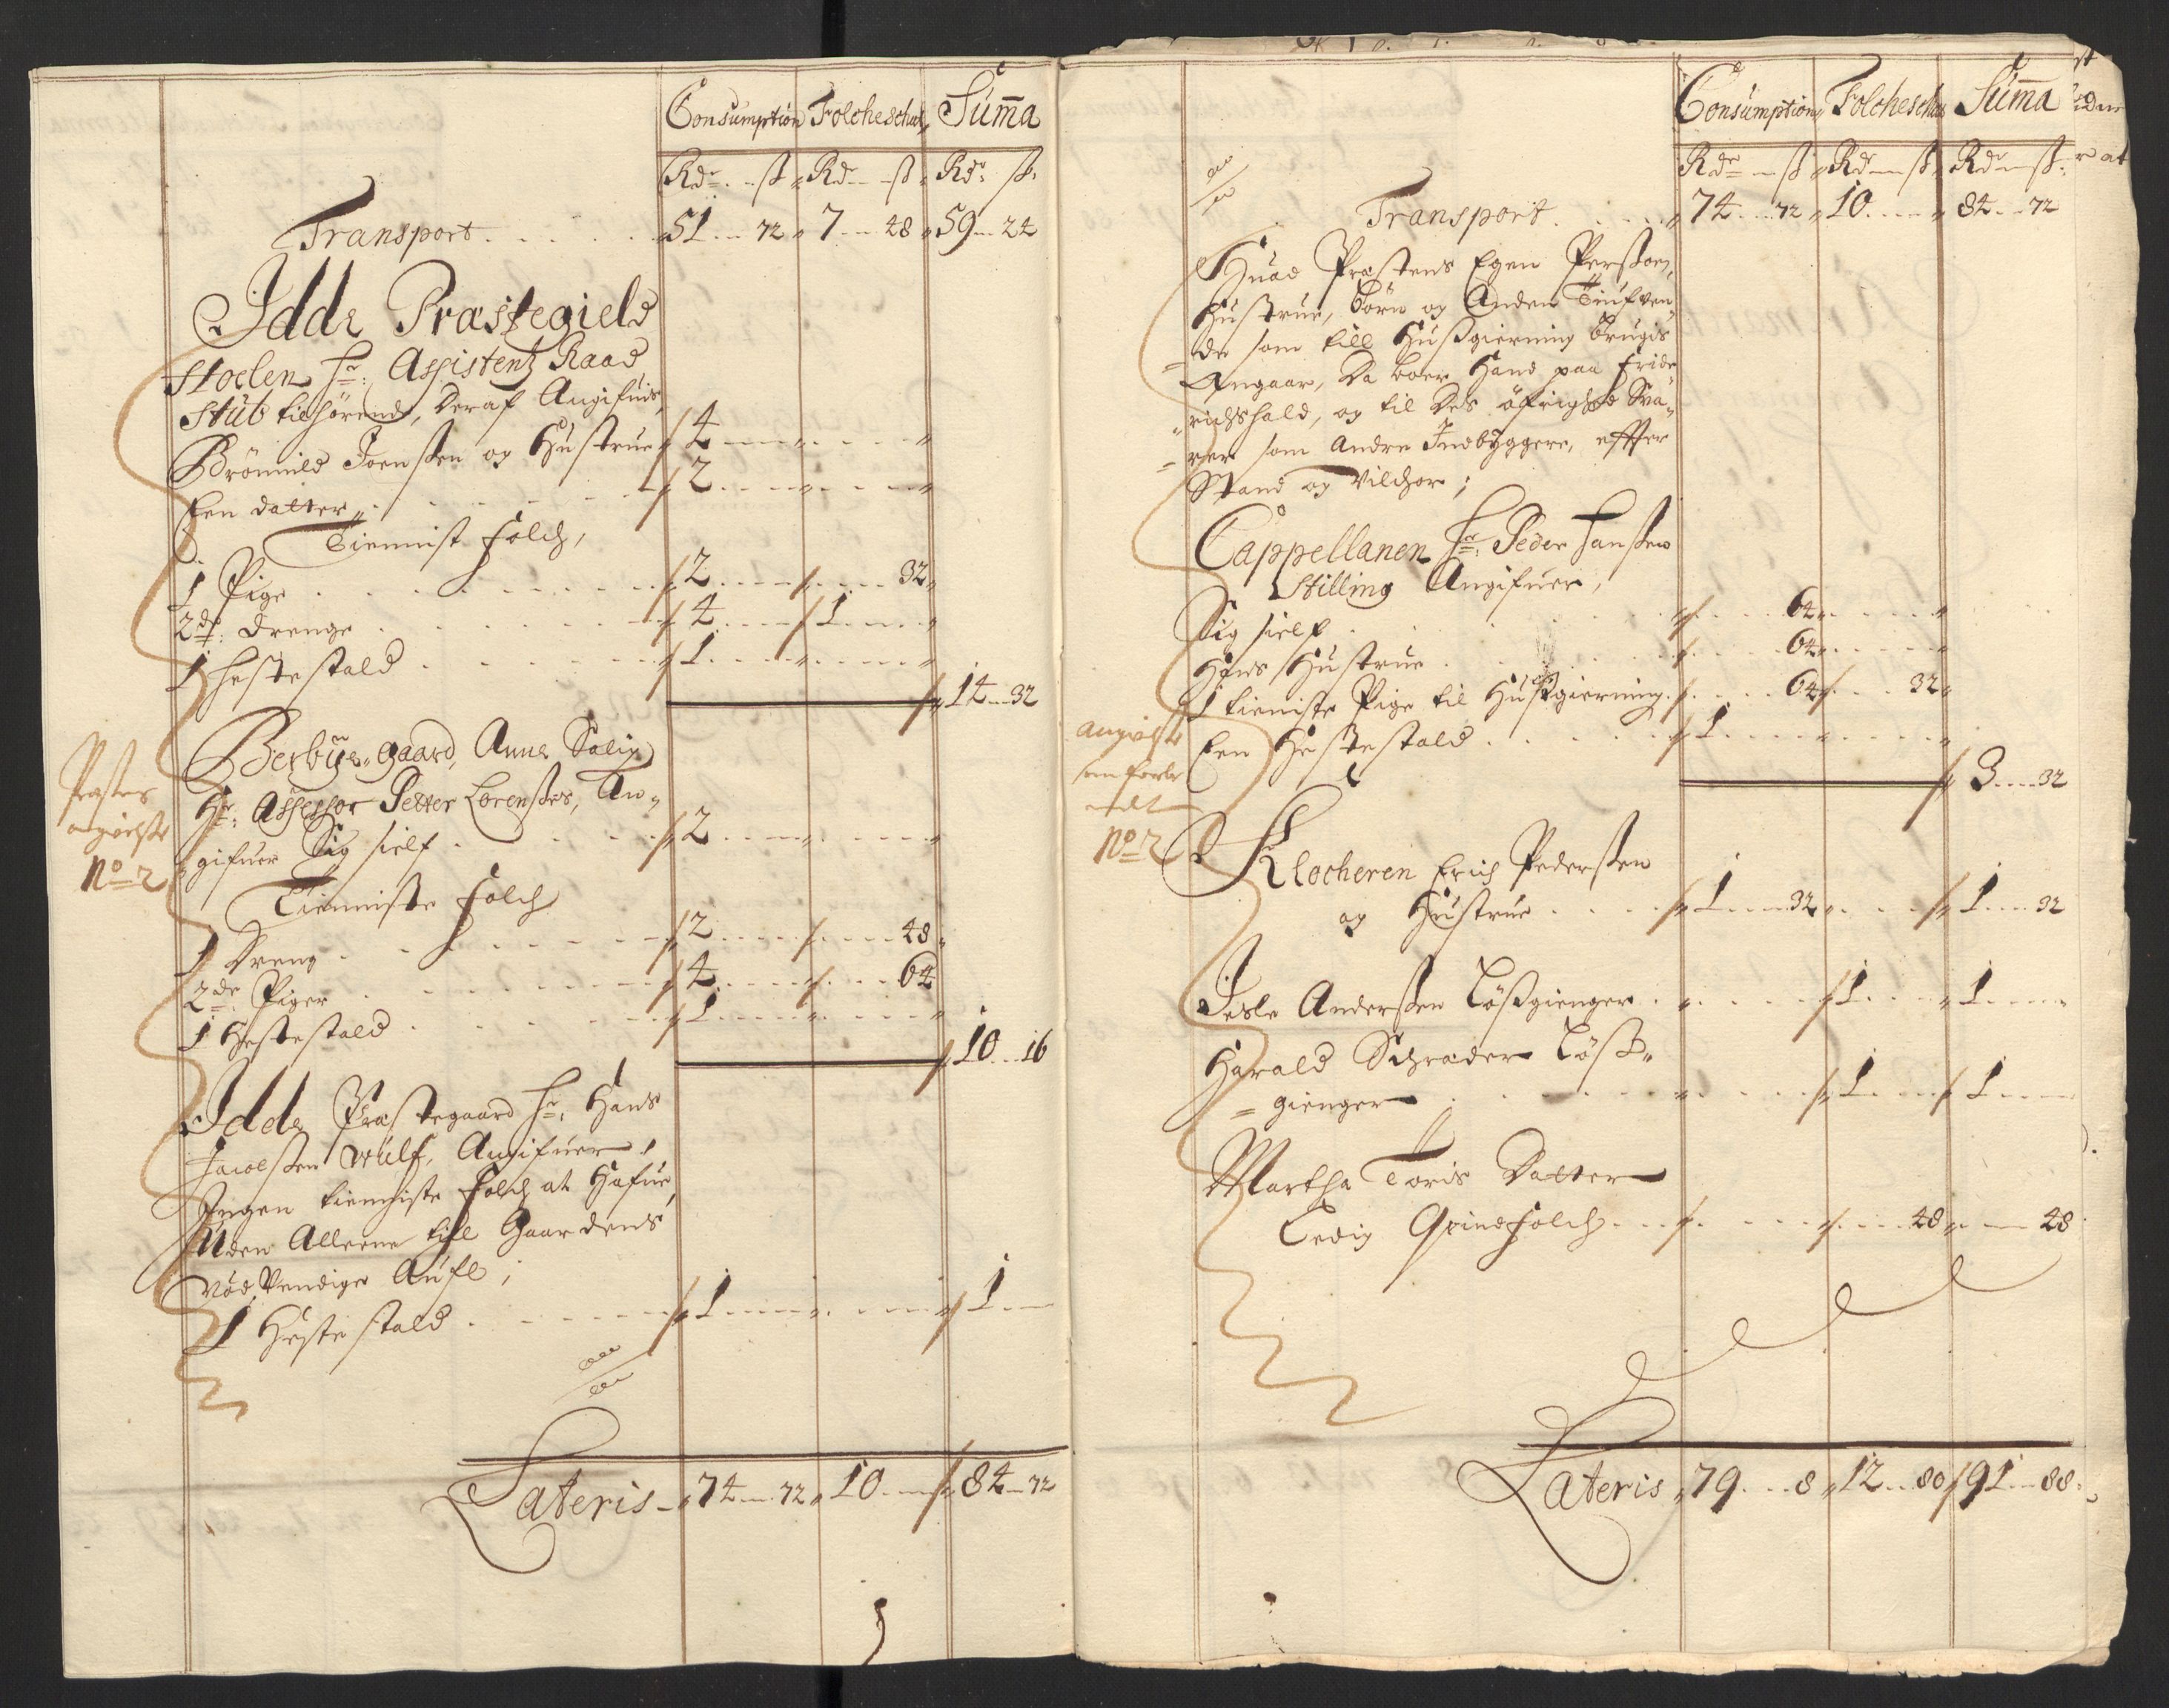 Consumption Folcheschat Suma
Rdr ß Rdr ß Rdr ß
Transport 51 72 7 48 59 24
Idde Præstegield
Stoelen Hr: Assistentz Raad
Stub tilhörende, Deraf Angifuis,
Brönnild Joenßen og Hustrue 4
Een datter 2
Tiennist folch,
1 Pige 2 32
2de: drenge 4 1
1 hestestald 1
14 32
Berbye-gaard, Anna Salig
Hr: Assessor Petter Lorenßens, An-
gifuer Sig sielf 2
Tienniste folch
1 Dreng 2 48
2de Piger 4 64
1 Hestestald 1
10 16
Præstens
angiefelse
No 2
Idde Præstegaard Hr: Hans
Jacobßen Wulf, Angifuer,
Ingen tienniste folch at Hafue,
Uden Alleene till Gaardens
nödvendige Aufl;
1 Hestestald 1 1
Lateris 74 72 10 84 72
Consumption Folcheschat Suma
Rdr ß Rdr ß Rdr ß
Transport 74 72 10 84 72
Huad Præstens Egen Perßoen,
Hustrue, börn og Anden
de som till Hußgierning brugis
Angaar, Da boer Hand paa Fride-
richshald, og til Des öfrighed Sva-
rer som Andre Indbyggere, effter
Stand og Vilchor;
Cappellanen Hr: Peder Hanßen
Stilling Angifuer,
Sig sielf 64
Hans Hustrue 64
1 tieniste Pige til Hußgierning 64 32
Een Hestestald 1
3 32
No 2
Klocheren Erich Pederßen
og Hustrue 1 32 1 32
Anderßen Lößgienger 1 1
Harald Schrader Löß-
gienger 1 1
Martha Toris Datter
Ledig Qvindfolch 48 48
Lateris 79 8 12 80 91 88